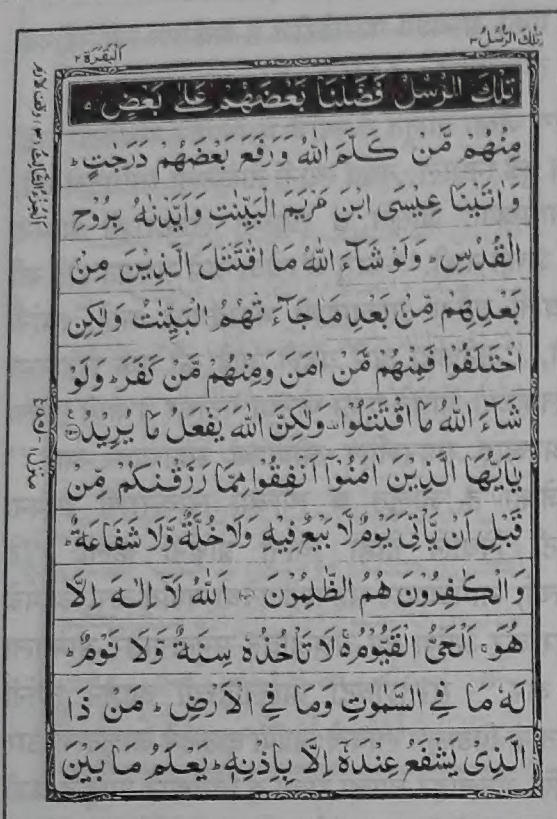 تِلْكَ الرُّسُلُ ٣
اَلْبَقَرَة ٢
تِلْكَ الرُّسُلُ فَضَّلْنَا بَعْضَهُمْ عَلٰى بَعْضٍ ۘ
مِنْهُمْ مَّنْ كَلَّمَ اللّٰهُ وَرَفَعَ بَعْضَهُمْ دَرَجٰتٍ ؕ
وَاٰتَيْنَا عِيْسَى ابْنَ مَرْيَمَ الْبَيِّنٰتِ وَاَيَّدْنٰهُ بِرُوْحِ
الْقُدُسِ ؕ وَلَوْ شَآءَ اللّٰهُ مَا اقْتَتَلَ الَّذِيْنَ مِنْ
بَعْدِهِمْ مِّنْ بَعْدِ مَا جَآءَ تْهُمُ الْبَيِّنٰتُ وَلٰكِنِ
اخْتَلَفُوْا فَمِنْهُمْ مَّنْ اٰمَنَ وَمِنْهُمْ مَّنْ كَفَرَ ؕ وَلَوْ
شَآءَ اللّٰهُ مَا اقْتَتَلُوْا وَلٰكِنَّ اللّٰهَ يَفْعَلُ مَا يُرِيْدُ
يٰۤاَيُّهَا الَّذِيْنَ اٰمَنُوْۤا اَنْفِقُوْا مِمَّا رَزَقْنٰكُمْ مِّنْ
قَبْلِ اَنْ يَّاْتِيَ يَوْمٌ لَّا بَيْعٌ فِيْهِ وَلَا خُلَّةٌ وَّلَا شَفَاعَةٌ ؕ
وَالْكٰفِرُوْنَ هُمُ الظّٰلِمُوْنَ اَللّٰهُ لَاۤ اِلٰهَ اِلَّا
هُوَ ۚ اَلْحَيُّ الْقَيُّوْمُ ۚ لَا تَاْخُذُهٗ سِنَةٌ وَّلَا نَوْمٌ ؕ
لَهٗ مَا فِي السَّمٰوٰتِ وَمَا فِي الْاَرْضِ ؕ مَنْ ذَا
الَّذِيْ يَشْفَعُ عِنْدَهٗۤ اِلَّا بِاِذْنِهٖ ؕ يَعْلَمُ مَا بَيْنَ
اَلْجُزْءُ الثَّالِثُ (٣) وقف لازم
منزل ١